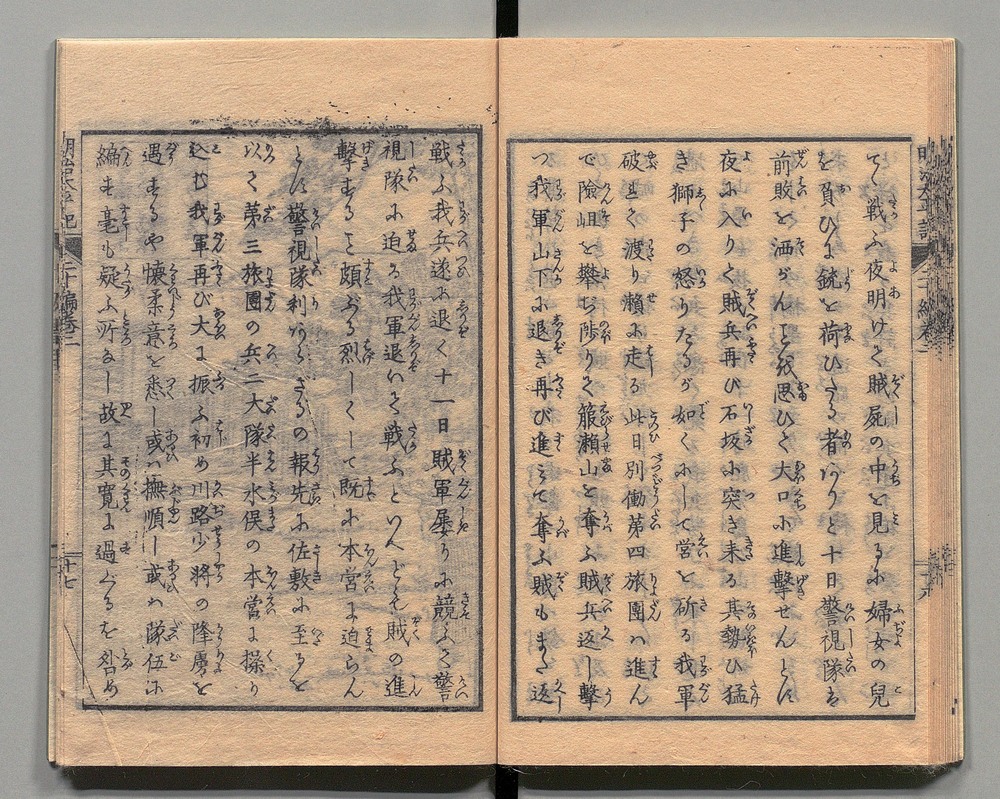 て戦ふ夜明けて賊屍の中を見るに婦女の兒
を負ひ又銃を荷ひたる者ありと十日警視隊は
前敗を洒がんと思ひて大口に進撃せんとは
夜に入りて賊兵再び石坂に突き来る其勢ひ猛
き獅子の怒りたるが如くにして営を斫る我軍
破れて渡り瀬に走る此日別働第四旅團ハ進ん
で險岨を攀ぢ陟りて箙瀬山を奪ふ賊兵返し擊
つ我軍山下に退き再び進みて奪ふ賊もまた返
明治太平記
二十編巻二
戦ふ我兵遂に退く十一日賊軍屡々に競ふて警
視隊に迫る我軍退いて戦ふといへども賊の進
擊すること頗ぶる烈しくして既に本営に迫らん
とは警視隊利あらざるの報先に佐敷に至るを
以て第三旅團の兵二大隊半水俣の本営に操り
込む我軍再び大に振ふ初め川路少将の降虜を
遇するや懐柔意を悉し或ハ撫順し或ハ隊伍に
編す毫も疑ふ所なし故に其寛に過ぐるを咎め
明治太平記
二十編巻二
二十七